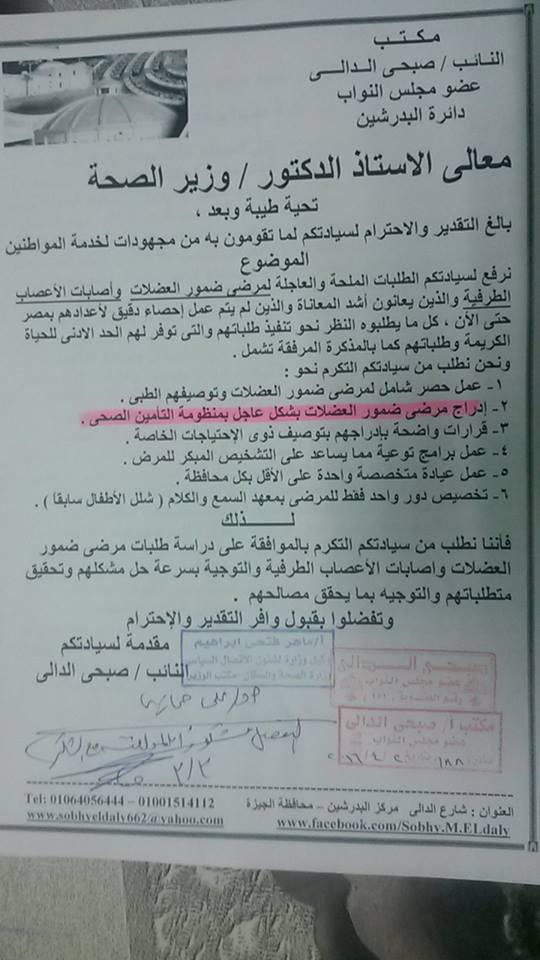 مكتب
النائب / صبحى الدالى
عضو مجلس النواب
دائرة البدرشين
معالى الاستاذ الدكتور / وزير الصحة
تحية طيبة وبعد ،
بالغ التقدير والاحترام لسيادتكم لما تقومون به من مجهودات لخدمة المواطنين
الموضوع
نرفع لسيادتكم الطلبات الملحة والعاجلة لمرضى ضمور العضلات وأصابات الأعصاب
الطرفية والذين يعانون أشد المعاناة والذين لم يتم عمل إحصاء دقيق لأعدادهم بمصر
حتى الأن ، كل ما يطلبوه النظر نحو تنفيذ طلباتهم والتى توفر لهم الحد الادنى للحياة
الكريمة وطلباتهم كما بالمذكرة المرفقة تشمل .
ونحن نطلب من سيادتكم التكرم نحو :
١- عمل حصر شامل لمرضى ضمور العضلات وتوصيفهم الطبى .
٢- إدراج مرضى ضمور العضلات بشكل عاجل بمنظومة التأمين الصحى .
٣- قرارات واضحة بإدراجهم بتوصيف ذوى الإحتياجات الخاصة .
٤- عمل برامج توعية مما يساعد على التشخيص المبكر للمرض .
٥- عمل عيادة متخصصة واحدة على الأقل بكل محافظة .
٦- تخصيص دور واحد فقط للمرضى بمعهد السمع والكلام ( شلل الأطفال سابقا ) .
لــــــذلك
فأننا نطلب من سيادتكم التكرم بالموافقة على دراسة طلبات مرضى ضمور
العضلات واصابات الأعصاب الطرفية والتوجية بسرعة حل مشكلهم وتحقيق
متطلباتهم والتوجيه بما يحقق مصالحهم .
وتفضلوا بقبول وافر التقدير والإحترام
مقدمة لسيادتكم
النائب / صبحى الدالى
أ/ماهر فتحى ابراهيم
وكيل وزارة لشئون الاتصال السياسى
وزارة الصحة والسكان - مكتب الوزير
صبحى الدالى
عضو مجلس النواب
مكتب أ/ صبحى الدالى
عضو مجلس النواب
العنوان : شارع الدالى مركز البدرشين – محافظة الجيزة
Tel: 01064056444 – 01001514112
www.facebook.com/Sobhy.M.ELdaly
www.sobhyeldaly662@yahoo.com